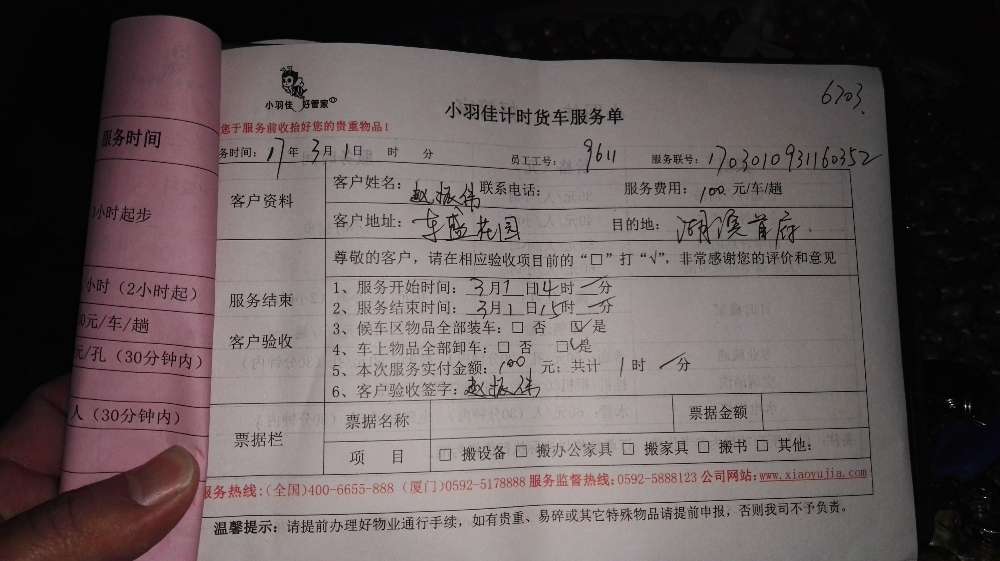 6703
小羽佳 好管家
小羽佳计时货车服务单
您于服务前收拾好您的贵重物品!
务时间: 17年3月1日 时 分 员工工号: 9611 服务联号: 1703010931160352
客户资料
客户姓名: 赵振伟 联系电话: 服务费用: 100 元/车/趟
客户地址: 东盛花园 目的地: 湖滨首府
尊敬的客户,请在相应验收项目前的“□”打“√”,非常感谢您的评价和意见
服务结束
客户验收
1、服务开始时间: 3月1日14时一分
2、服务结束时间: 3月1日15时一分
3、候车区物品全部装车: □ 否 ☑是
4、车上物品全部卸车: □ 否 ☑是
5、本次服务实付金额: 100 元; 共计 1时一分
6、客户验收签字: 赵振伟
票据栏
票据名称 票据金额
项 目 □ 搬设备 □ 搬办公家具 □ 搬家具 □ 搬书 □ 其他:
服务热线:(全国)400-6655-888 (厦门)0592-5178888 服务监督热线:0592-5888123 公司网站:www.xiaoyujia.com
温馨提示: 请提前办理好物业通行手续,如有贵重、易碎或其它特殊物品请提前申报,否则我司不予负责。
服务时间
小时起步
小时(2小时起)
0元/车/趟
元/孔(30分钟内)
人(30分钟内)